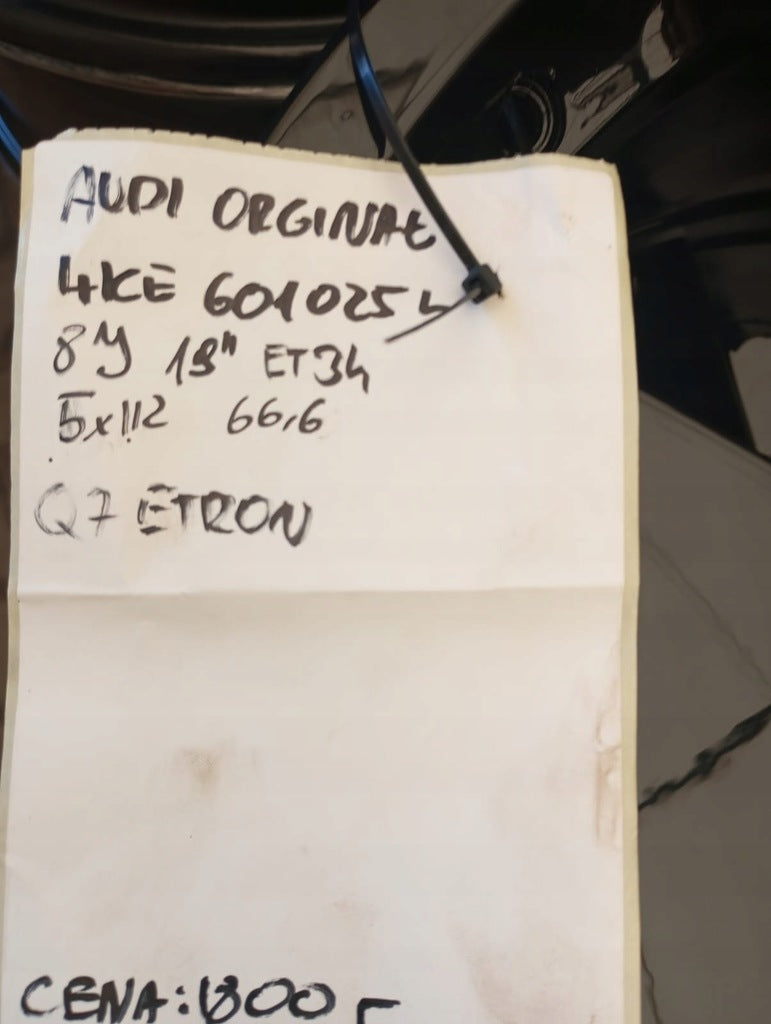 AUDI ORGINAŁ
4KE 601025 L
8J 19" ET34
5x112 66,6
Q7 ETRON
CENA: 1800,-